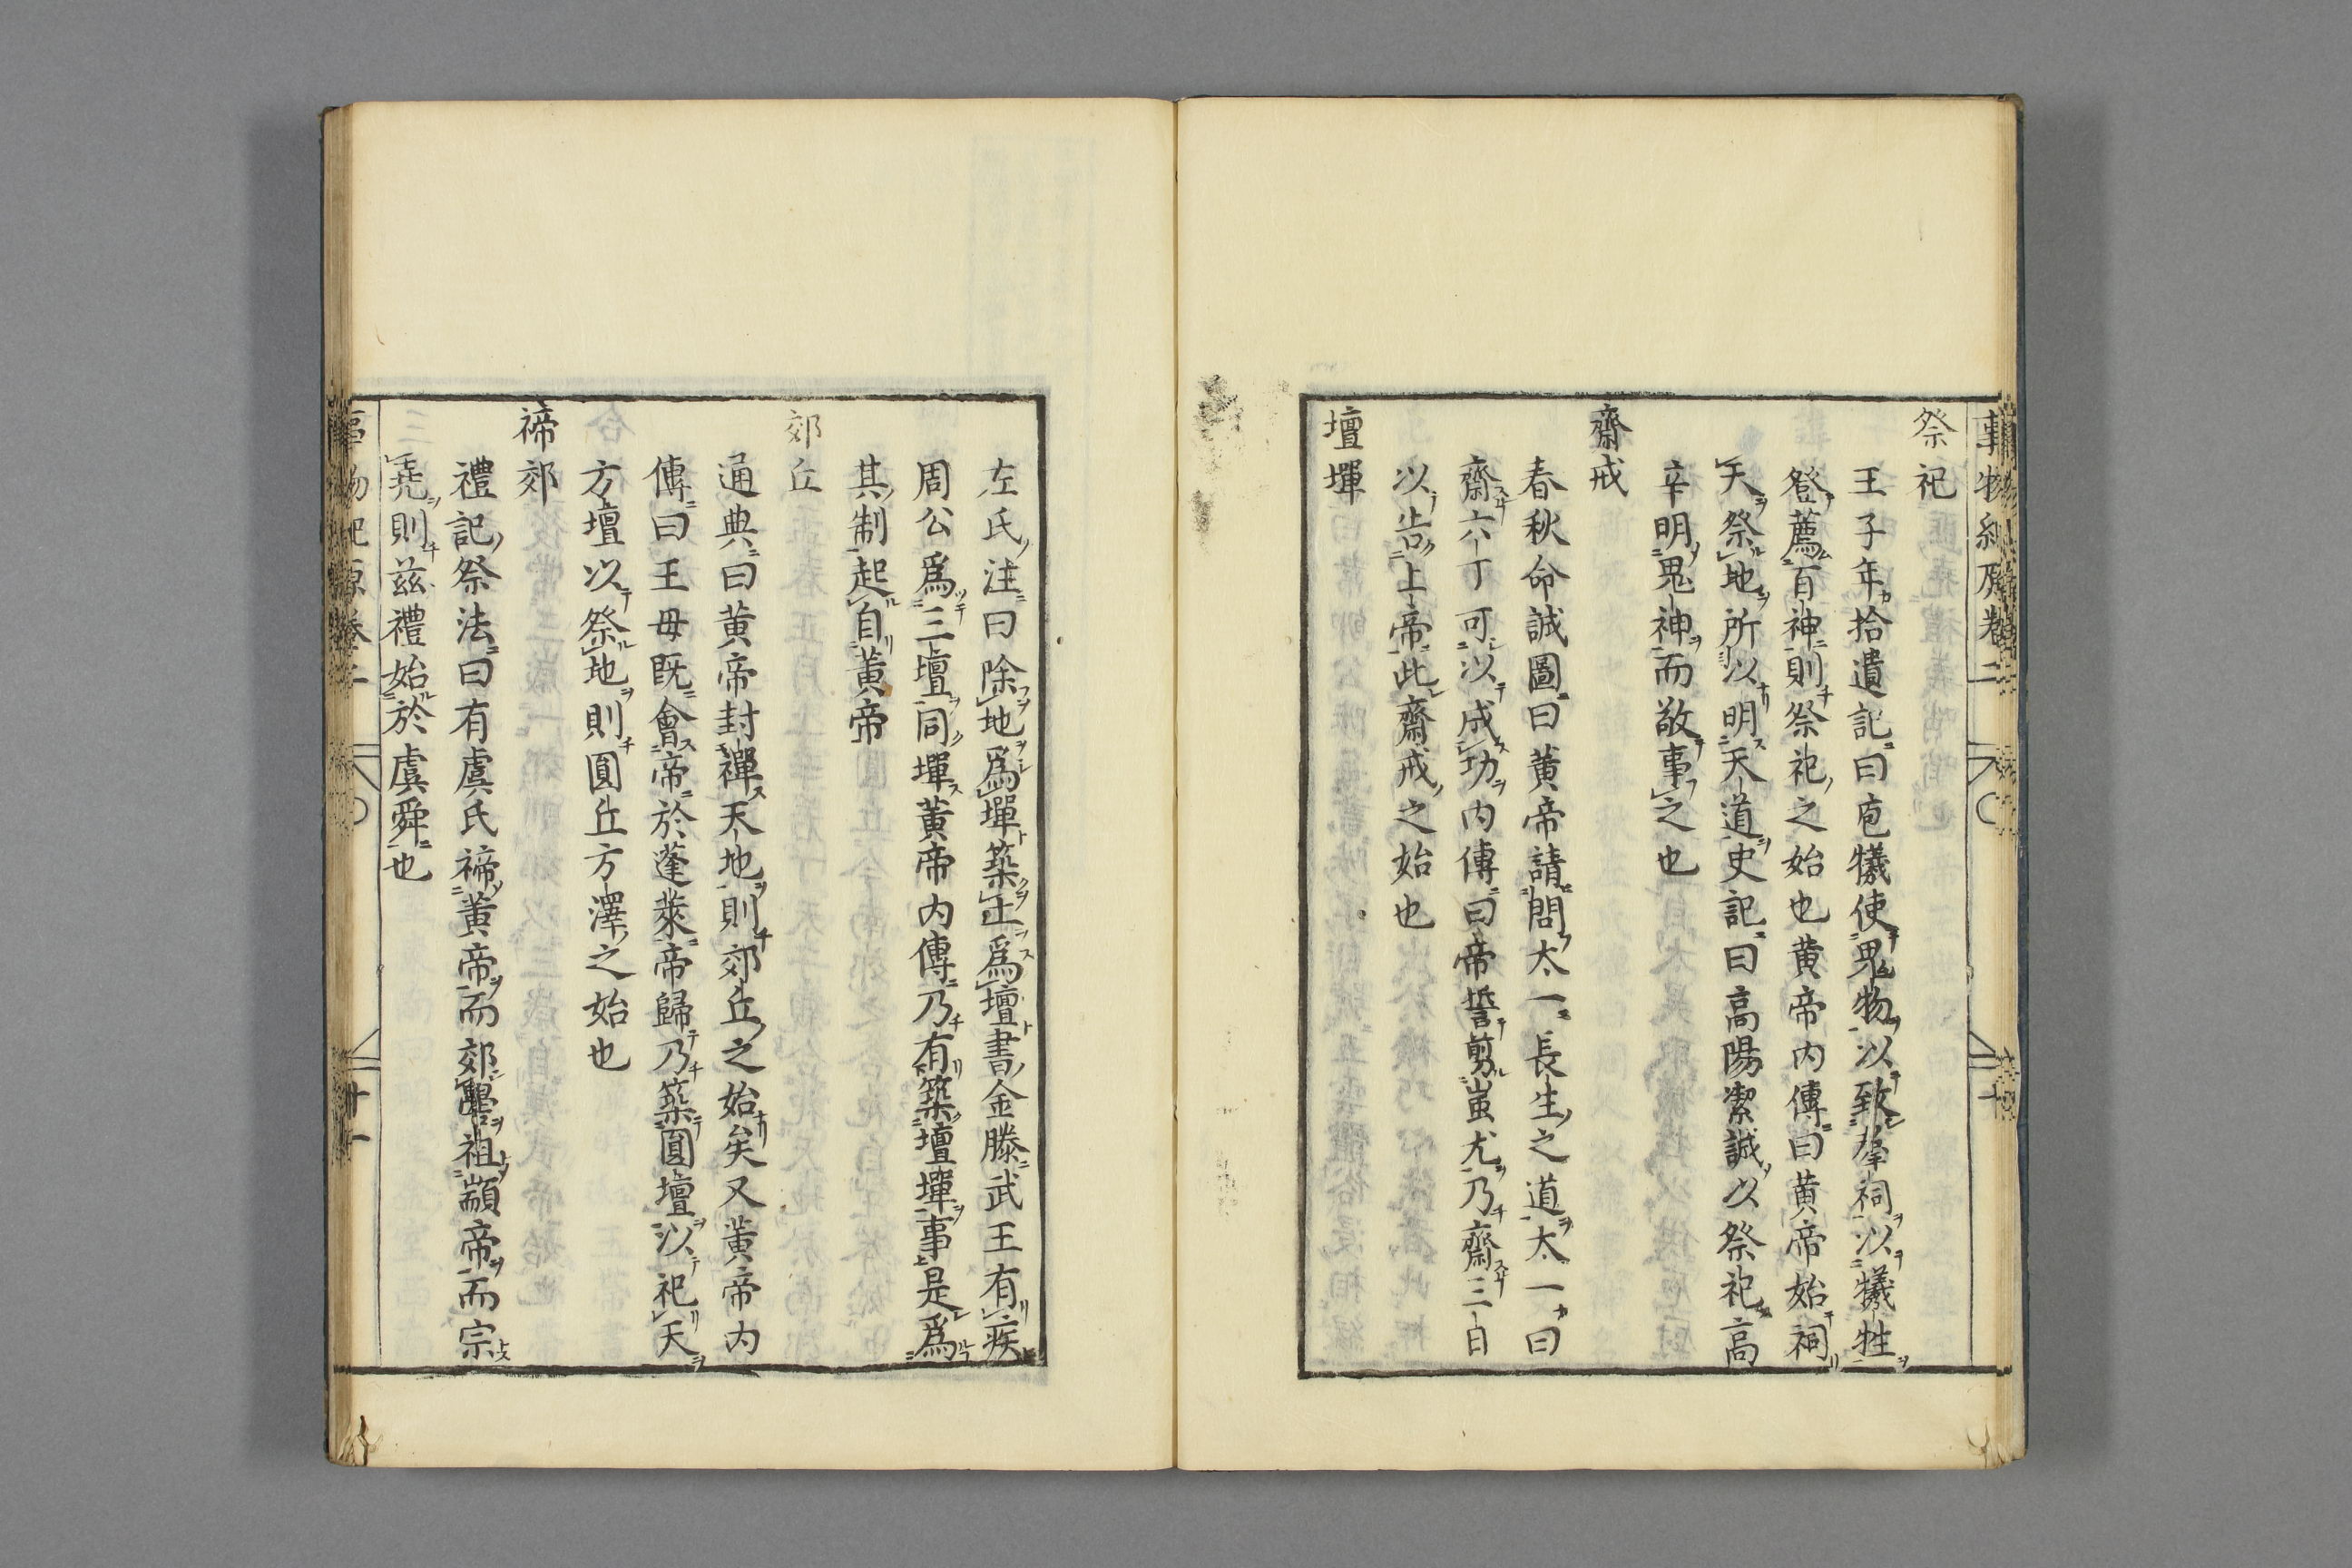 事物紀原卷二
祭祀
王子年拾遺記曰庖犧使鬼物以致羣祠以犧牲
登薦百神則祭祀之始也黄帝内傳曰黄帝始祠
天祭地所以明天道史記曰高陽潔誠以祭祀高
辛明鬼神而敬事之也
齋戒
春秋命誠圖曰黄帝請問太一長生之道太一曰
齋六丁可以成功内傳曰帝誓剪蚩尤乃齋三日
以告上帝此齋戒之始也
壇墠
左氏注曰除地爲墠築土爲壇書金滕武王有疾
周公爲三壇同墠黄帝内傳乃有築壇墠事是爲
其制起自黄帝
郊丘
通典曰黄帝封禪天地則郊丘之始矣又黄帝内
傳曰王母既會帝於蓬萊帝歸乃築圓壇以祀天
方壇以祭地則圓丘方澤之始也
禘郊
禮記祭法曰有虞氏禘黄帝而郊嚳祖顓帝而宗
堯則兹禮始於虞舜也
事物紀原卷二
十一